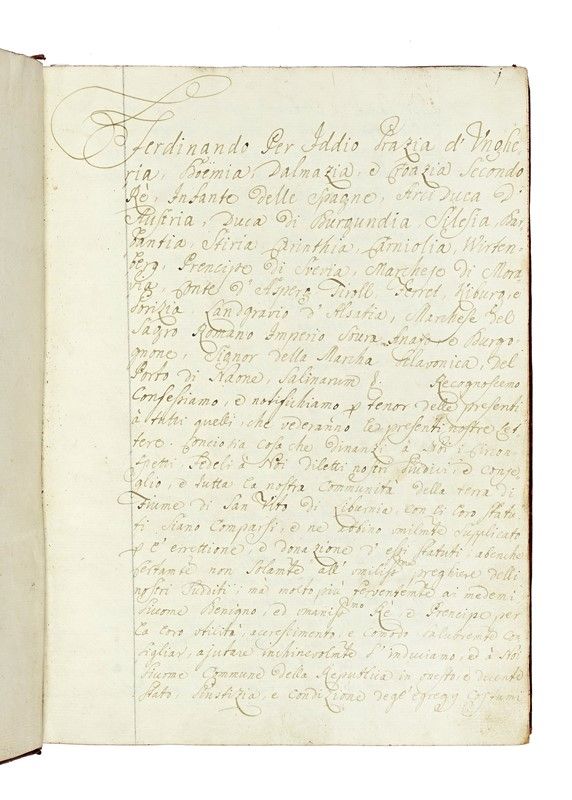 1
Ferdinando Per Iddio Grazia d' Unghe
ria, Boëmia, Dalmazia, e Croazia Secondo
Rè, Infante delle Spagne, Arci Duca d'
Austria, Duca di Burgundia, Silesia, Bar
bantia, Stiria Carinthia, Carniolia, Wirten
berg, Prencipe di Sveria, Marchese di Mora
via, Conte d' Asperg Tiroll Ferret, Kiburg, e
Gorizia Landgravio d' Alsatia, Marchese del
Sagro Romano Imperio Soura Anaso e Burgo
gnone, Signor della Marcha Sclavonica, del
Porto di Naone, Salinarum Recognoscemo
Confessiamo, e notifichiamo p tenor delle presenti
à tutti quelli, che vederanno le presenti nostre Let
tere. Conciosia cosa che dinanzi à Noi i Circon
spetti, Fedeli à Noi diletti nostri Giudici, e Conse
glio, e tutta la nostra Communità della terra di
Fiume di San Vito di Liburnia, con li loro Statu
ti siano Comparsi, e ne habino umilmte supplicato
p l' errettione, e donazione d' essi statuti, abenche
pertanto non solamte all' umilissme preghiere delli
nostri Sudditi, mà molto più ferventemte ai medemi
siccome Benigno, ed umanissmo Rè, e Prencipe per
la loro utilità, accrescimento, e comodo salutremte con
sigliar, ajutare inchinevolmte s' induciamo, ed à Noi
siccome Commune della Republica in questo, e decente
stato, Giustizia, e Condizione degl' egregj Costumi